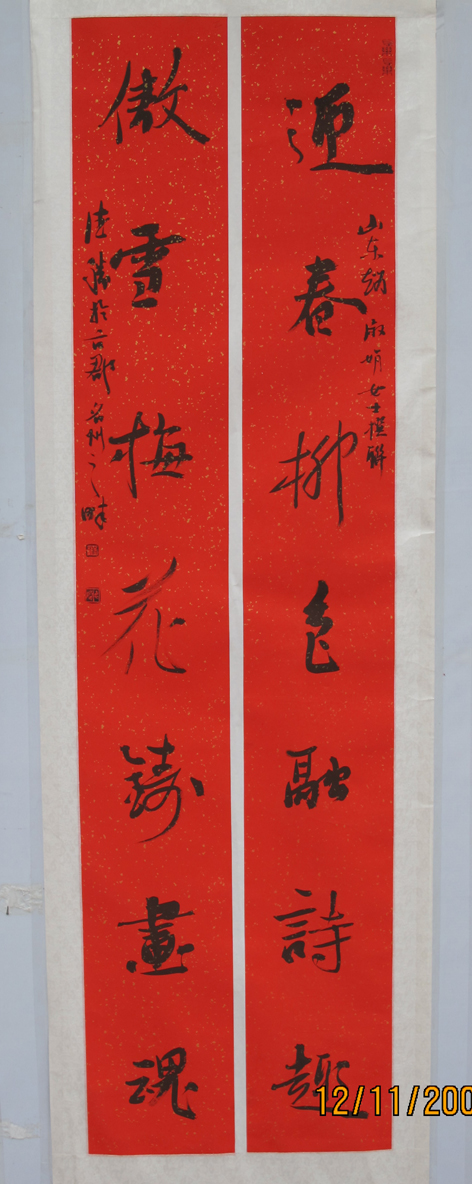 迎春柳色融詩趣
山东赵淑娟女士撰聯
傲雪梅花鑄畫魂
名州之畔
12/11/200